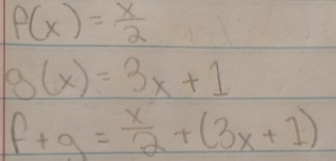 f(x) = x/2
g(x) = 3x + 1
f + g = x/2 + (3x + 1)